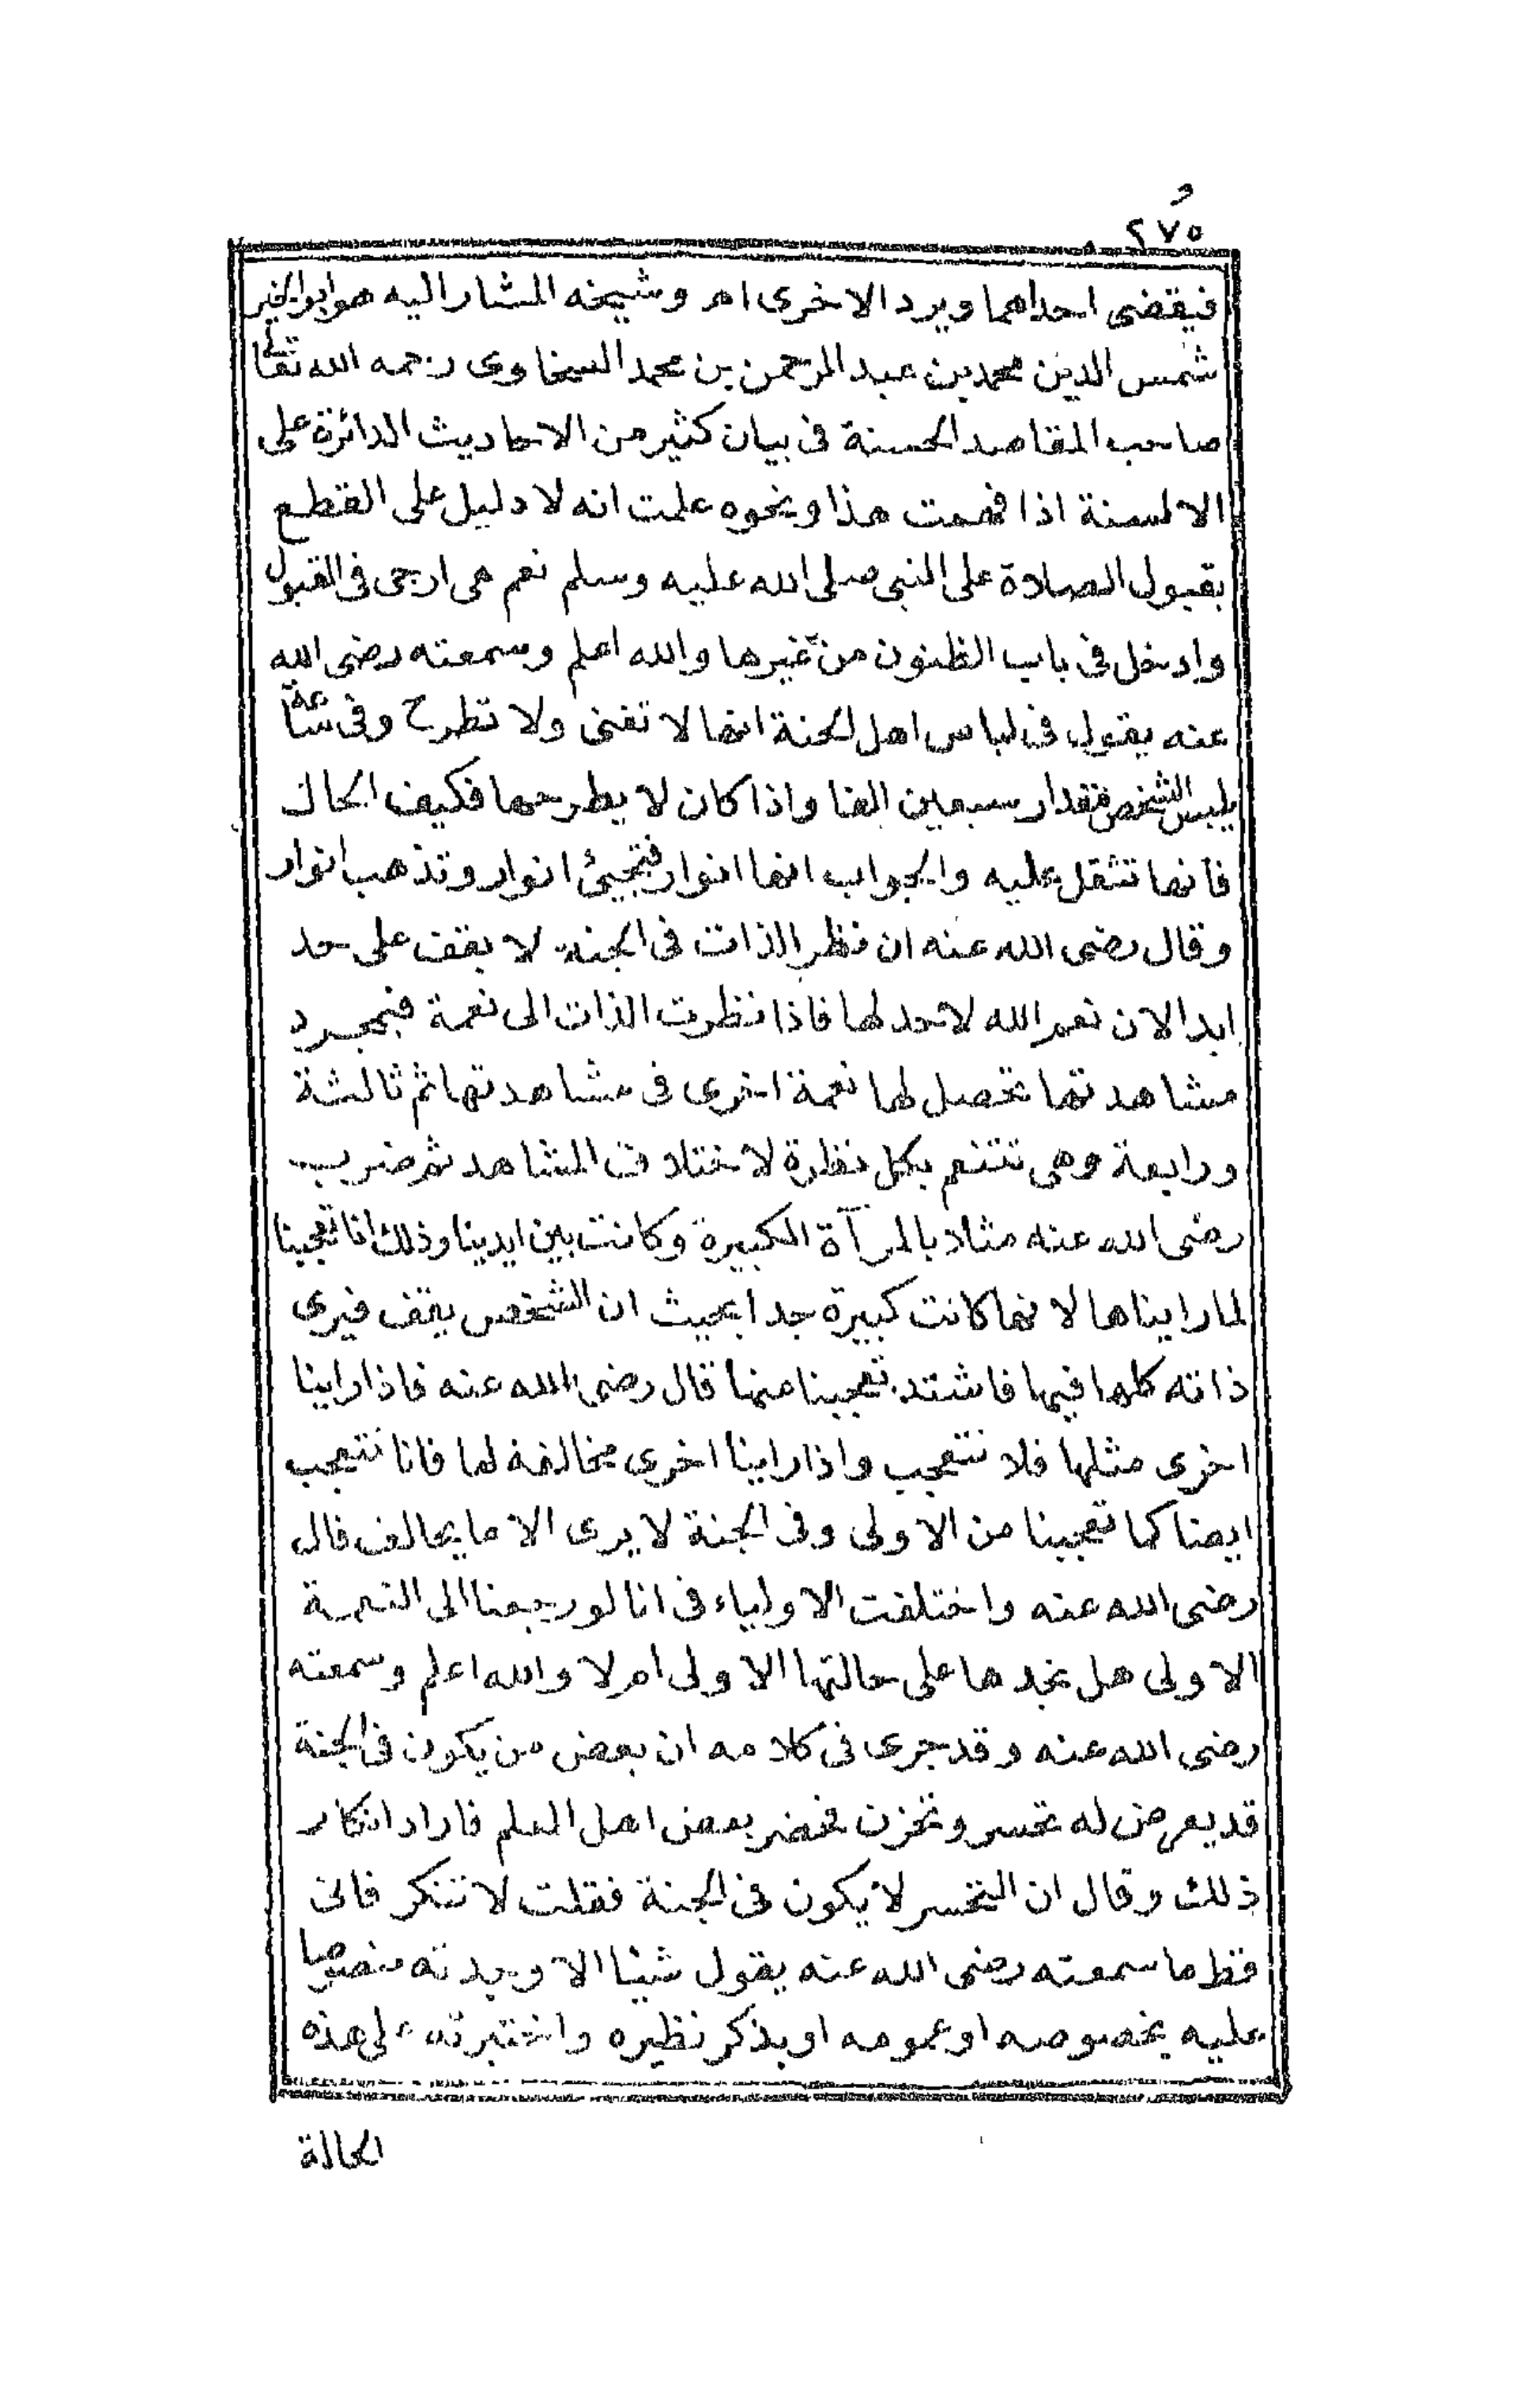 ٢٧٥
فيقضى احداهما ويرد الاخرى اهـ وشيخه المشار اليه هو ابو الخير
شمس الدين محمد بن عبد الرحمن بن محمد السخاوى رحمه الله تعالى
صاحب المقاصد الحسنة فى بيان كثير من الاحاديث الدائرة على
الالسنة اذا فهمت هذا ونحوه علمت انه لا دليل على القطع
بقبول الصلاة على النبى صلى الله عليه وسلم نعم هى ارجى فى القبول
وادخل فى باب الظنون من غيرها والله اعلم وسمعته رضى الله
عنه يقول فى لباس اهل الجنة انها لا تفنى ولا تطرح وفى ساعة
يلبس الشخص مقدار سبعين الفا واذا كان لا يطرحها فكيف الحال
فانها تثقل عليه والجواب انها انوار فتجيئ انوار وتذهب انوار
وقال رضى الله عنه ان نظر الذات فى الجنة لا يقف على حد
ابدا لان نعم الله لا حد لها فاذا نظرت الذات الى نعمة فبمجرد
مشاهدتها تحصل لها نعمة اخرى فى مشاهدتها ثم ثالثة
ورابعة وهى تتنعم بكل نظرة لاختلاف المشاهد ثم ضرب
رضى الله عنه مثلا بالمرآة الكبيرة وكانت بين ايدينا وذلك انا تعجبنا
لما رايناها لانها كانت كبيرة جدا بحيث ان الشخص يقف فيرى
ذاته كلها فيها فاشتد تعجبنا منها قال رضى الله عنه فاذا راينا
اخرى مثلها فلا نتعجب واذا راينا اخرى مخالفة لها فانا نتعجب
ايضا كما تعجبنا من الاولى وفى الجنة لا يرى الا ما يخالف قال
رضى الله عنه واختلفت الاولياء فى انا لو رجعنا الى النعمة
الاولى هل نجدها على حالتها الاولى ام لا والله اعلم وسمعته
رضى الله عنه وقد جرى فى كلامه ان بعض من يكون فى الجنة
قد يعرض له تحسر وتحزن فحضر بعض اهل العلم فاراد انكار
ذلك وقال ان التحسر لا يكون فى الجنة فقلت لا تنكر فانى
قط ما سمعته رضى الله عنه يقول شيئا الا وجدته منصوصا
عليه بخصوصه او عمومه او بذكر نظيره واختبرته على هذه
الحالة